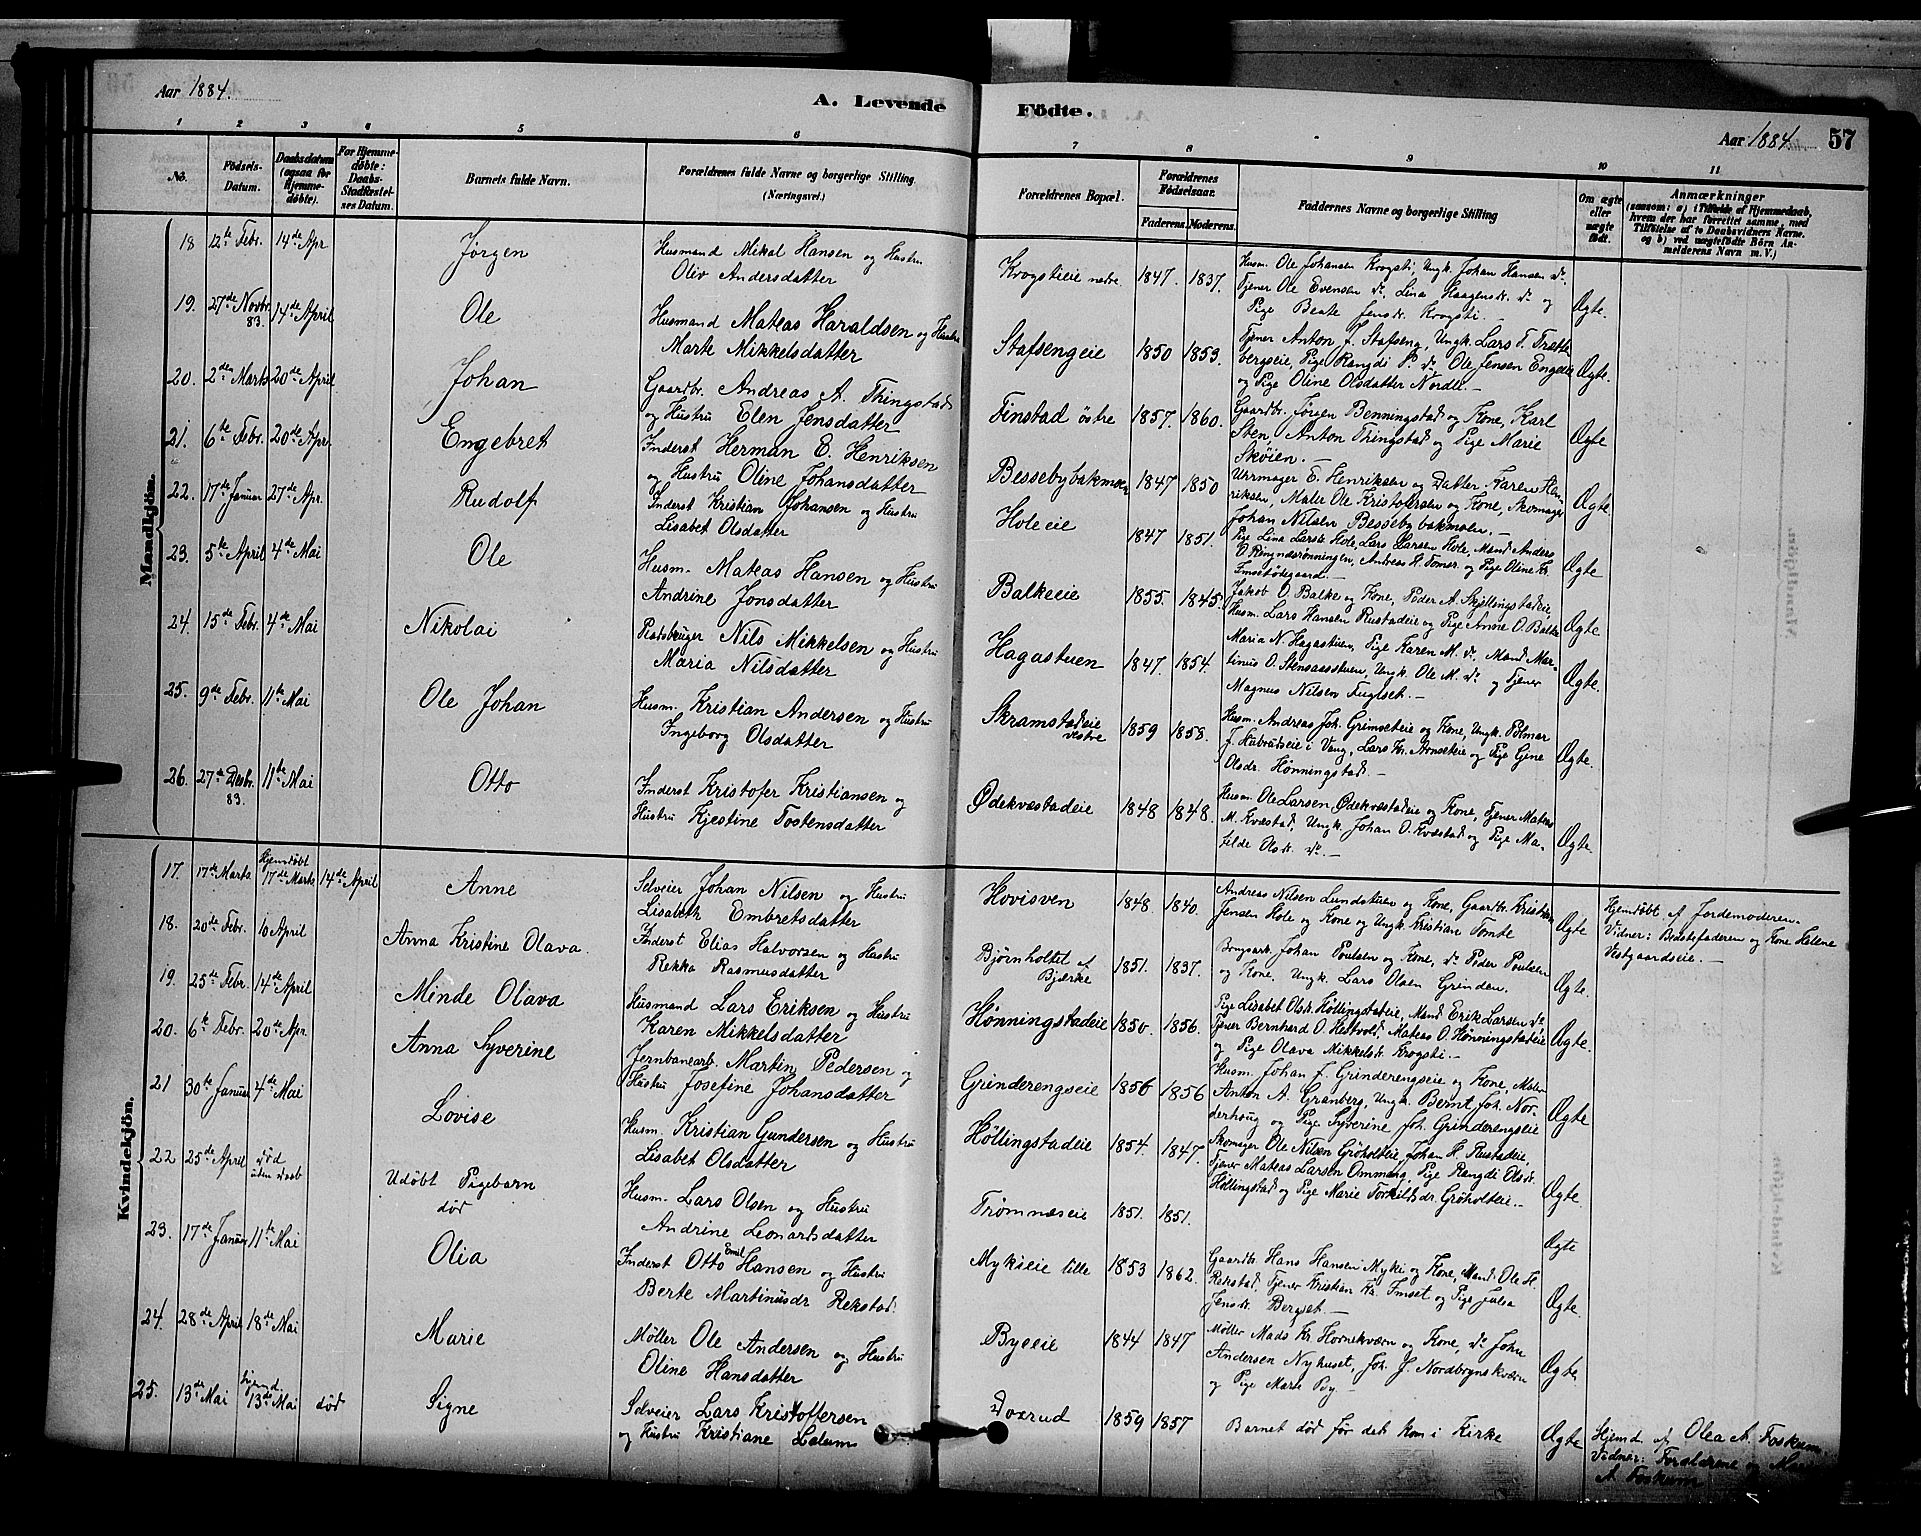 Aar 1884.
A. Levende
Födte.
Aar 1884.
57
1 2 3 4 5 6 7 8 9 10 11
No.
Födsels-
Datum.
Daabsdatum
(ogsaa for
Hjemme-
döbte).
For Hjemme-
döbte:
Daabs-
Stadfæstel-
ses Datum.
Barnets fulde Navn.
Forældrenes fulde Navne og borgerlige Stilling
(Næringsvei.)
Forældrenes Bopæl.
Forældrenes
Födselsaar.
Faderens. Moderens.
Faddernes Navne og borgerlige Stilling
Om ægte
eller
uægte
født.
Anmærkninger
(saasom: a) i Tilfælde af Hjemmedaab,
hvem der har forrettet samme, med
Tilföielse af to Daabsvidners Navne.
og b) ved uægtefödte Börn An-
melderens Navn m. V.)
Mandkjön.
18 12te Febr. 14de Apr. Jørgen
Husmand Mikal Hansen og Hustru
Oliv Andersdatter
Krogstieie nedre. 1847. 1837.
Husm. Ole Johansen Krogsti, Ungk. Johan Hansen do
Tjener Ole Evensen do, Lina Haagensdr. do og
Pige Beate Jensdr. Krogsti. Ægte.
19. 27de Novbr. 83. 14de April Ole
Husmand Mateas Haraldsen og Hustru
Marte Mikkelsdatter
Stafsengeie 1850 1853.
Tjener Anton J. Stafseng, Ungk. Lars T. Trætte-
bergseie, Pige Rangdi P. do Ole Jensen Engelie
og Pige Oline Olsdatter Nordli. Ægte.
20. 2den Marts 20de April Johan
Gaardbr. Andreas A. Thingstad
og Hustru Elen Jensdatter
Finstad östre 1857. 1860.
Gaardbr. Jørgen Benningstad og Kone, Karl
Sten, Anton Thingstad og Pige Marie
Skøien. Ægte
21. 6te Febr. 20de Apr. Engebret
Inderst Herman E. Henriksen
og Hustru Oline Johansdatter
Bessebybakmoen 1847 1850
Uhrmager E. Henriksen og Datter Karen Hen-
riksen, Maler Ole Kristofersen og Kone, Skomager
Johan Nilsen Bessebybakmoen. Ægte
22. 17de Januar 27de Apr. Rudolf
Inderst Kristian Johansen og Hustru
Lisabet Olsdatter
Holeeie 1847 1851.
Pige Lina Larsdr. Hole, Lars Larsen Hole, Mand Anders
O. Ringnæsrønningen, Andreas H. Tomer og Pige Oline Kr.
Imsetødegaard. Ægte
23. 5te April 4de Mai Ole
Husm. Mateas Hansen og Hustru
Andrine Jonsdatter
Balkeeie 1855. 1845.
Jakob O. Balke og Kone, Peder A. Skjellingstadeie
Husm. Lars Hansen Rustadeie og Pige Anne O. Balke Ægte
24. 15de Febr. 4de Mai Nikolai
Pladsbruger Nils Mikkelsen og Hustru
Maria Nilsdatter
Hagastuen 1847. 1854.
Maria N. Hagastuen, Pige Karen M. do, Mand Mar-
tinus O. Stensaasstuen, Ungk. Ole M. do og Tjener
Magnus Nilsen Fuglset. Ægte.
25. 9de Febr. 11te Mai Ole Johan
Husm. Kristian Andersen og Hustru
Ingeborg Olsdatter
Skramstadeie
vestre 1859 1858.
Husm. Andreas Joh. Grimseteie og Kone, Ungk. Polmar
J. Hubredseie i Vang, Lars Kr. Arnseteie og Pige Gine
Olsdr. Hönningstad. Ægte.
26. 27de Decbr. 83. 11te Mai Otto
Inderst Kristofer Kristiansen og
Hustru Kjestine Tostensdatter
Ødekvæstadeie 1848 1848.
Husm. Ole Larsen Ødekvæstadeie og Kone, Tjener Mateas
M. Kvæstad, Ungk. Johan O. Kvæstad og Pige Ma-
tilde Olsdr. do. Ægte.
Kvindekjön.
17. 17de Marts Hjemdöbt 17de Marts 14de April Anne
Selveier Johan Nilsen og Hustru
Lisabeth Embretsdatter
Hovisven 1848. 1840.
Andreas Nilsen Lundstuen og Kone, Gaardbr. Kristian
Jensen Hole og Kone og Ungk. Kristian Tomte Ægte
Hjemdöbt af Jordemoderen.
Vidner: Bedstefaderen og Kone Helene
Vestgaardseie.
18. 20de Febr. 10 April Anna Kristine Olava.
Inderst Elias Halvorsen og Hustru
Rekka Rasmusdatter
Bjørnholtet af
Bjerke 1851. 1837.
Brugsarb. Johan Poulsen og Kone, do Peder Poulsen
og Kone. Ungk. Lars Olsen Grinden. Ægte.
19. 25de Febr. 14de April Minde Olava
Husmand Lars Eriksen og Hustru
Karen Mikkelsdatter
Hønningstadeie 1850. 1856.
Pige Lisabet Olsdr. Höllingstadeie, Mand Erik Larsen do
Tjener Bernhard O. Hestvold, Mateas O. Hønningstadeie
og Pige Olava Mikkelsdr. Krogsti. Ægte.
20. 6te Febr. 20de Apr. Anna Syverine
Jernbanearb. Martin Pedersen og
Hustru Josefine Johansdatter
Grinderengseie 1856 1856
Husm. Johan J. Grinderengseie og Kone, Maler
Anton A. Granberg, Ungk. Bernt Joh. Nor-
derhoug og Pige Syverine Joh. Grinderengseie Ægte
21 30te Januar 4de Mai Lovise
Husm. Kristian Gundersen og Hustru
Lisabet Olsdatter
Höllingstadeie 1854. 1847.
Skomager Ole Nilsen Gröholteie, Johan H. Rustadeie,
Tjener Mateas Larsen Ommang, Pige Rangdi Olsdr.
Höllingstad og Pige Marie Torkildsdr. Gröholteie. Ægte.
22 25de April død
uden Daab Udöbt Pigebarn
død
Husm. Lars Olsen og Hustru
Andrine Leonardsdatter
Trømnæseie 1851. 1851. Ægte
23. 17de Januar 11te Mai Olia
Inderst Otto Emil Hansen og Hustru
Berte Martinusdr Rekstad.
Mykieie lille 1853 1862.
Gaardbr. Hans Hansen Myki og Kone, Mand Ole H.
Rekstad, Tjener Kristian Kr. Imset og Pige Julia
Jensdr. Berget. Ægte.
24. 28de April 18de Mai Marie
Møller Ole Andersen og Hustru
Oline Hansdatter
Byeeie 1844 1847
Møller Mads Kr. Hornekværn og Kone, do John
Andersen Nyhuset, Joh. J. Nordbynskværn
og Pige Marte By. Ægte.
25. 13de Mai Hjemd. 13de Mai død Signe
Selveier Lars Kristoffersen
og Hustru Kristiane Lelum
Doxrud 1859 1857
Barnet død før det kom i Kirke Ægte
Hjemd. af Olea A. Foskum
Vidner: Forældrene og
A. Foskum